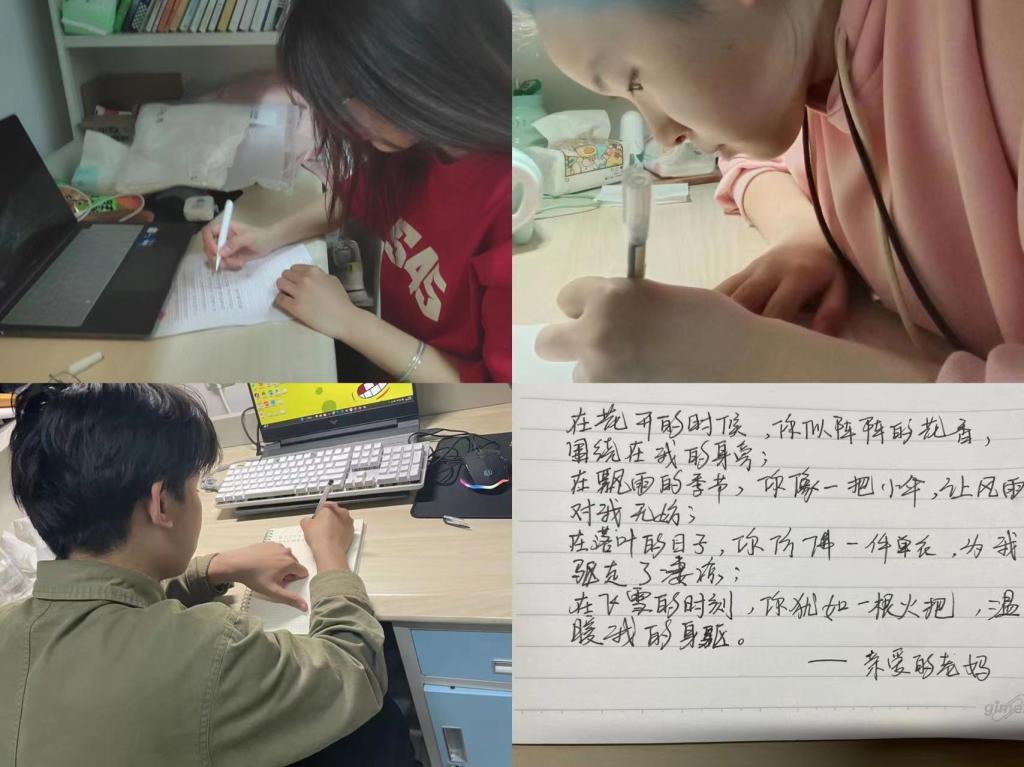 在花开的时候，你似阵阵的花香，
围绕在我的身旁；
在飘雨的季节，你像一把小伞，让风雨
对我无妨；
在落叶的日子，你仿佛一件单衣，为我
驱走了凄凉；
在飞雪的时刻，你犹如一根火把，温
暖我的身驱。
—— 亲爱的老妈